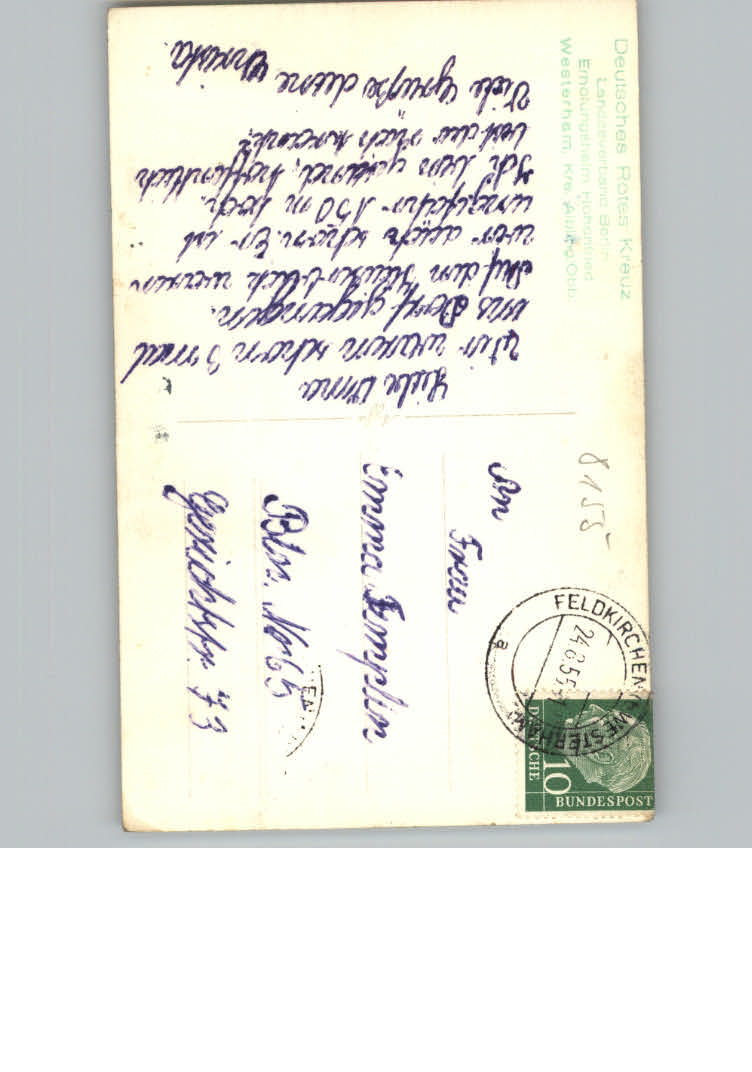 Deutsches Rotes Kreuz
Landesverband Berlin
Erholungsheim Hohenfried
Westerham, Krs. Aibling Obb.
Liebe Oma
Wir waren schon 3 mal
ins Dorf gegangen.
Auf den waren
wir auch schon. Er ist
ungefähr 150 m hoch.
Ich bin gesund, hoffentlich
bist du noch
Viele Grüße deine Christa.
8155
An
Frau
Emma Templin
Bln. No 65
Gerichtstr. 73
FELDKIRCHEN
WESTERHAM
24.8.55
a
DEUTSCHE
10
BUNDESPOST